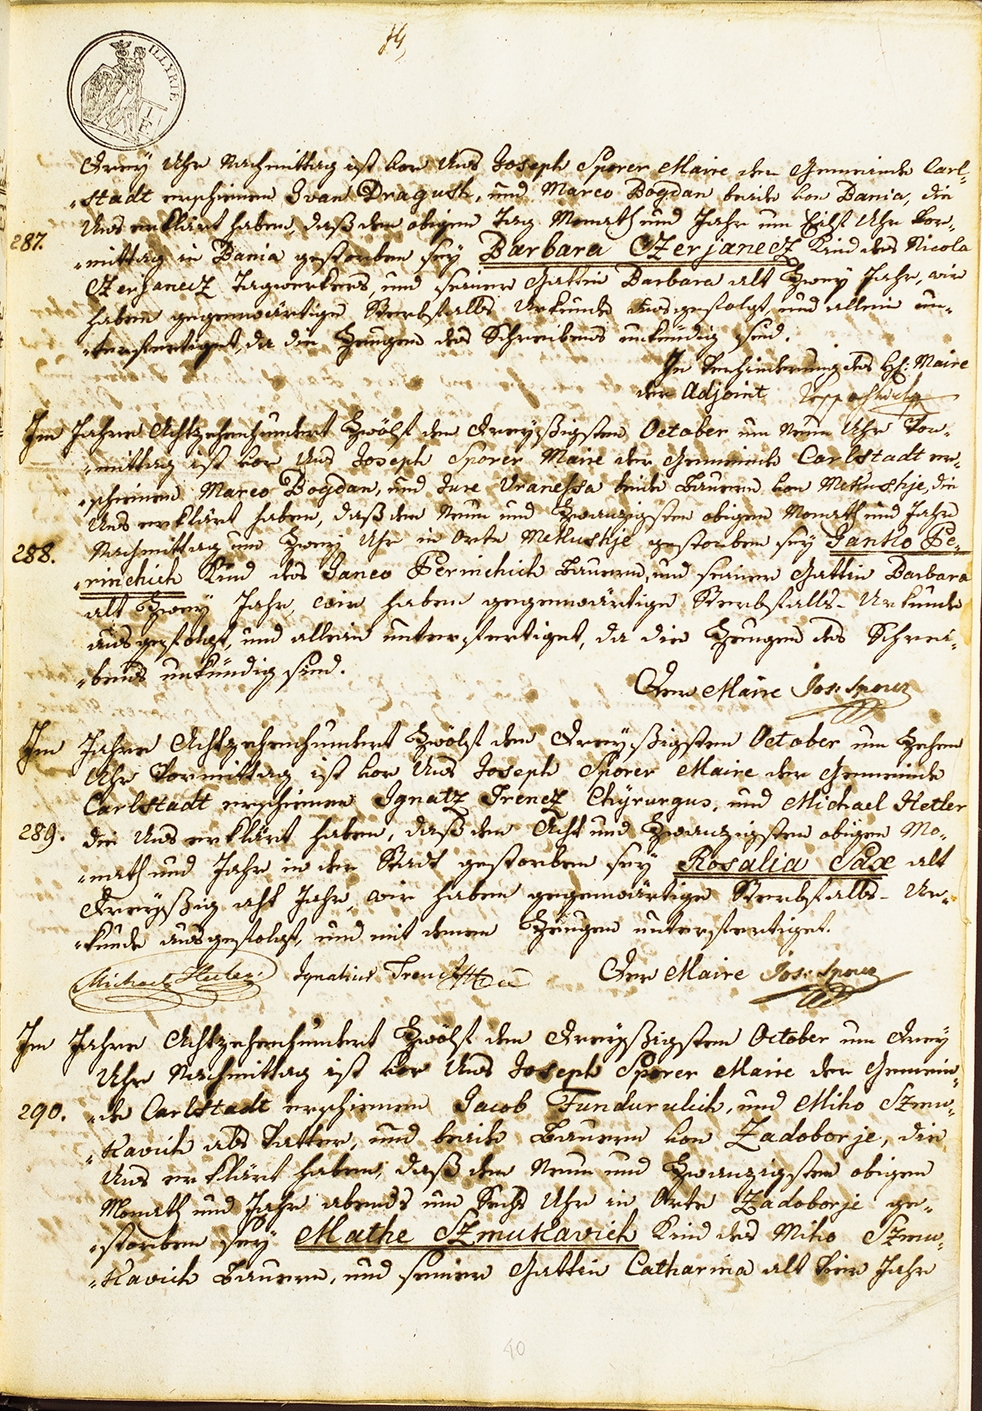 74,
ILLYRIE
1 F
Drey Uhr Nachmittag ist vor Uns Joseph Sporer Maire der Gemeinde Carl-
-stadt erschienen Ivan Dragush, und Marco Bogdan beide von Bania, die
Uns erklärt haben, daß den obigen Tag Monath und Jahr um Uhr Vor-
287.
-mittag in Bania gestorben sey Barbara Czerjanecz Kind des Nicola
Czerjanecz Tagwerkers, und seiner Gattin Barbara alt Zwey Jahr, wir
haben gegenwärtige Sterbfalls Urkunde ausgefolgt, und allein un-
-terfertiget, da die Zeugen des Schreibens unkündig sind.
In Verhinderung des H: Maire
der Adjoint
Im Jahre Achtzehenhundert Zwölf den Dreyßigsten October um Neun Uhr Vor-
-mittag ist vor Uns Joseph Sporer Maire der Gemeinde Carlstadt er-
-schienen Marco Bogdan, und Jure Vranessa beide Bauern von Mekushje, die
Uns erklärt haben, daß den Neun und Zwanzigsten obigen Monath und Jahr
288.
Nachmittag um Zwey Uhr in Orte Mekushje gestorben sey Janko Pe-
-rinchich Kind des Janco Perinchich Bauern, und seiner Gattin Barbara
alt Zwey Jahr, wir haben gegenwärtige Sterbfalls-Urkunde
ausgefolgt, und allein unterfertiget, da die Zeugen des Schrei-
-bens unkündig sind.
Der Maire Jos: Sporer
Im Jahre Achtzehenhundert Zwölf den Dreyßigsten October um Zehen
Uhr Vormittag ist vor Uns Joseph Sporer Maire der Gemeinde
Carlstadt erschienen Ignatz Trenez Chyrurgus, und Michael Hetler
289.
die Uns erklärt haben, daß den Acht und Zwanzigsten obigen Mo-
-nath und Jahr in der Stadt gestorben sey Rosalia Sax alt
Dreyßig acht Jahr, wir haben gegenwärtige Sterbfalls-Ur-
-kunde ausgefolgt, und mit denen Zeugen unterfertiget.
Michael Ignatius Der Maire Jos: Sporer
Im Jahre Achtzehenhundert Zwölf den Dreyßigsten October um Drey
Uhr Nachmittag ist vor Uns Joseph Sporer Maire der Gemein-
290.
-de Carlstadt erschienen Jacob Fundurulich, und Miko Szmu-
-kavich als Vatter, und beide Bauern von Zadoborje, die
Uns erklärt haben, daß den Neun und Zwanzigsten obigen
Monath und Jahr abends um Sechs Uhr in Orte Zadoborje ge-
-storben sey Mathe Szmukavich Kind des Miko Szmu-
-kavich Bauern, und seiner Gattin Catharina alt Vier Jahr
40